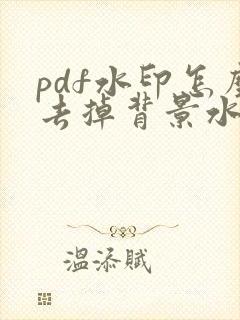 pdf水印怎
去掉背景水
温添賦